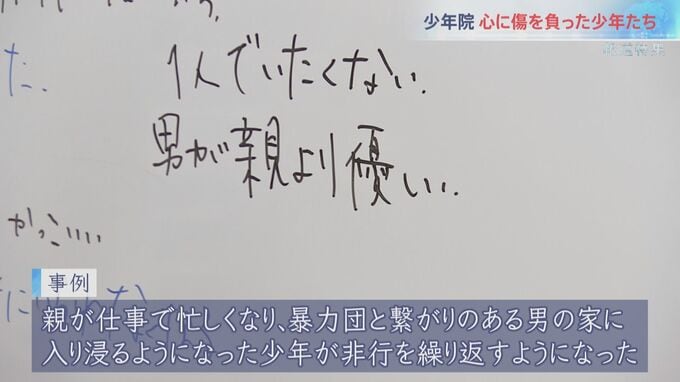 少年院 心に傷を負った少年たち
報道特集
た.
1人でいたくない.
男が親より優しい.
かっこいい
事例
親が仕事で忙しくなり、暴力団と繋がりのある男の家に
入り浸るようになった少年が非行を繰り返すようになった